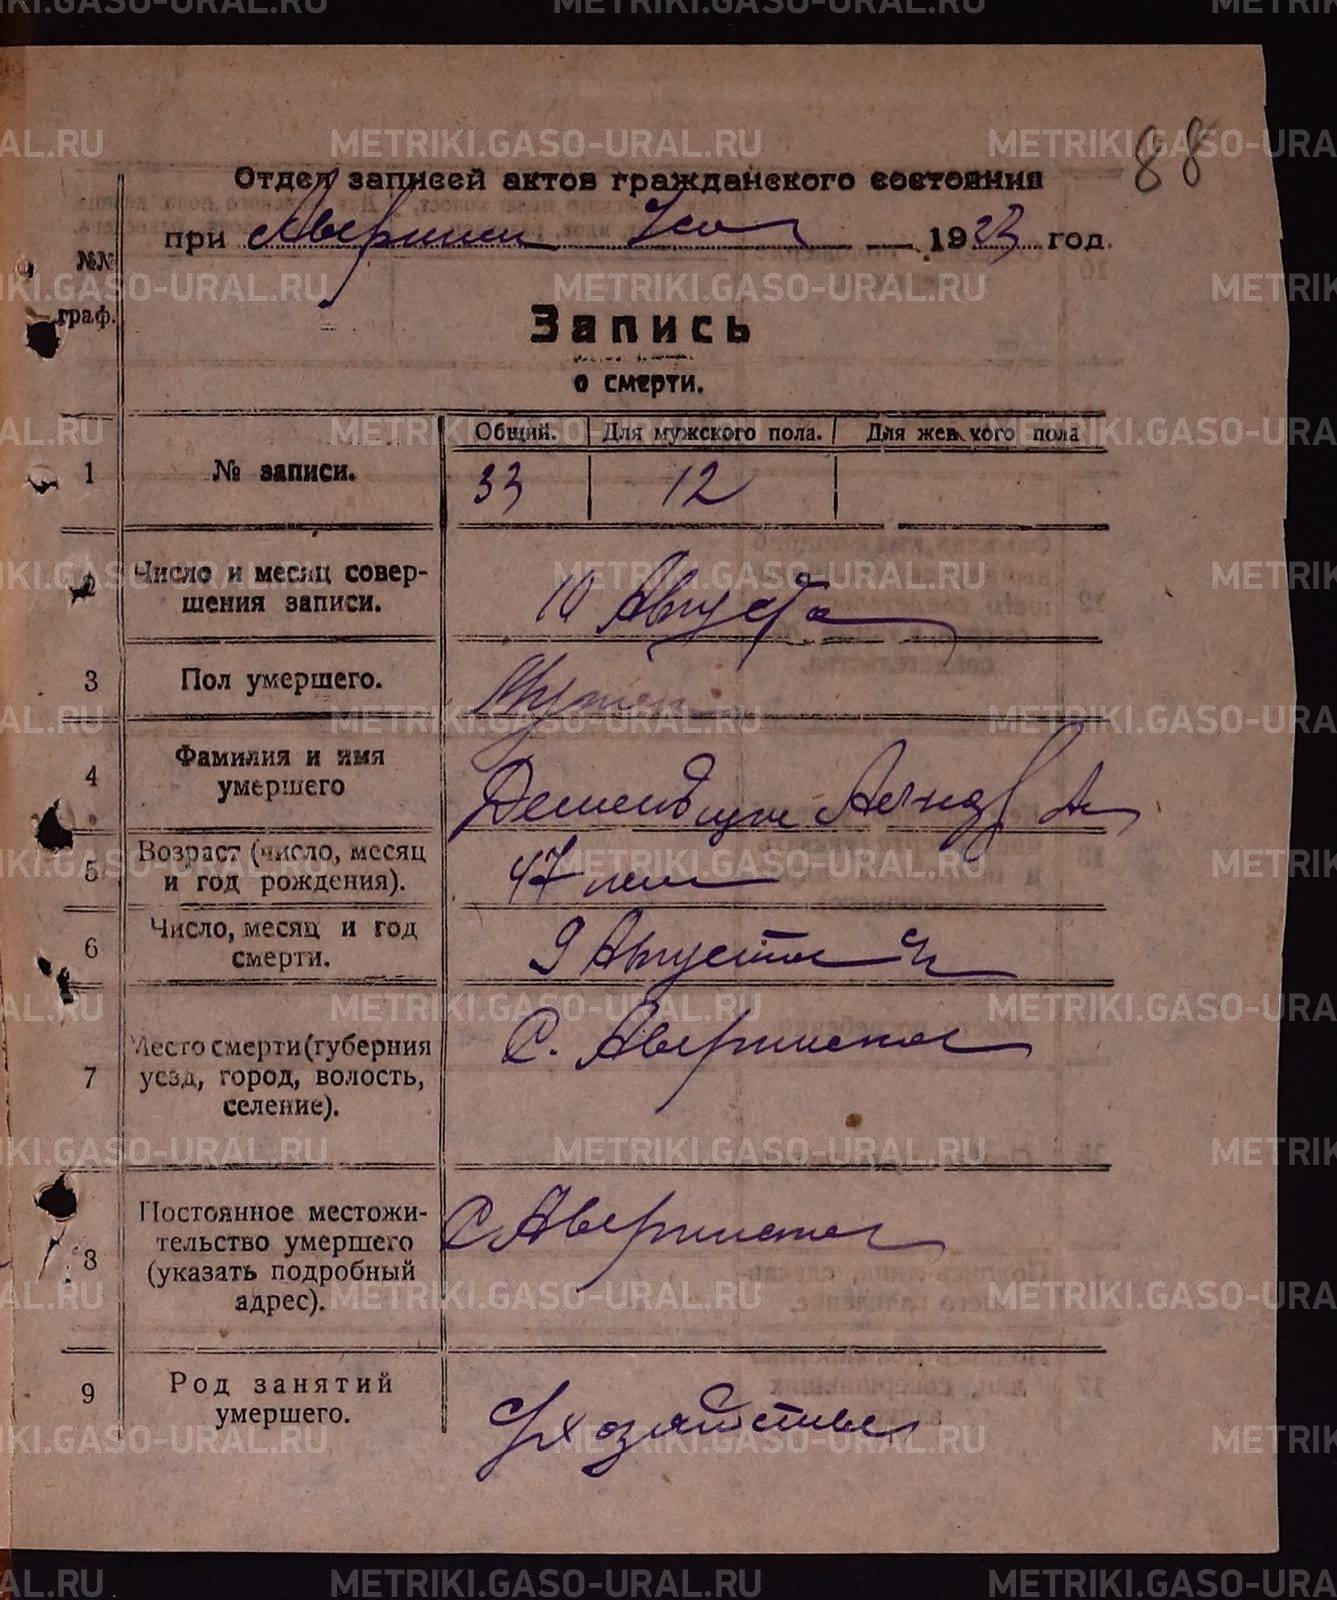 88
Отдел записей актов гражданского состояния
при Аверинск 1923 год.
№№ граф.
Запись
о смерти.
Общий. Для мужского пола. Для женского пола
1 № записи. 33 12
2 Число и месяц совер-
шения записи. 10 Августа
3 Пол умершего. Мужск
4 Фамилия и имя
умершего
5 Возраст (число, месяц
и год рождения). 47 лет
6 Число, месяц и год
смерти. 9 Августа
7 Место смерти (губерния
уезд, город, волость,
селение). С. Аверинское
8 Постоянное местожи-
тельство умершего
(указать подробный
адрес). С. Аверинское
9 Род занятий
умершего.
METRIKI.GASO-URAL.RU